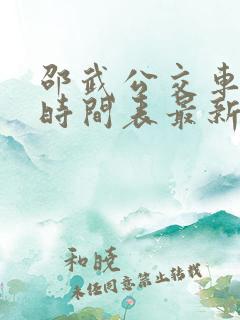 邵武公交車
時間表最新
和晓
未任同意禁止转载